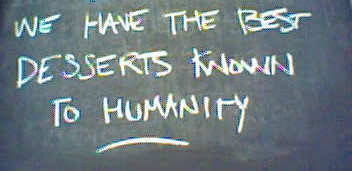 WE HAVE THE BEST
DESSERTS KNOWN
TO HUMANITY